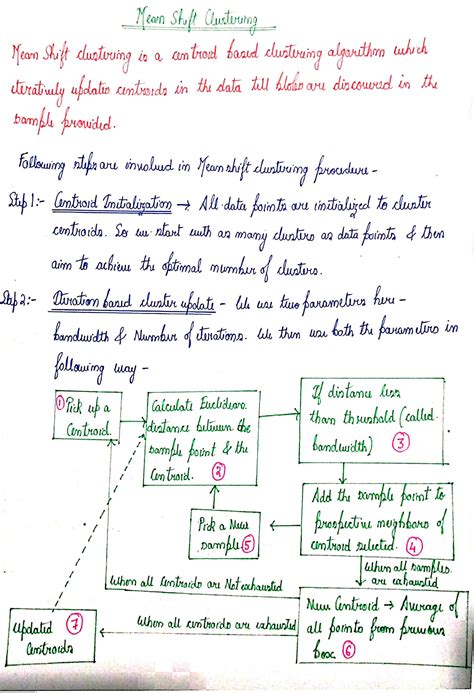 Mean Shift Clustering
Mean Shift clustering is a centroid based clustering algorithm which
iteratively updates centroids in the data till blobs are discovered in the
sample provided.
Following steps are involved in Mean shift clustering procedure -
Step 1:- Centroid Initialization → All data points are initialized to cluster
centroids. So we start with as many clusters as data points & then
aim to achieve the optimal number of clusters.
Step 2:- Iteration based cluster update - We use two parameters here -
bandwidth & Number of iterations. We then use both the parameters in
following way -
① Pick up a
Centroid.
Calculate Euclidean
distance between the
sample point & the
Centroid. ②
If distance less
than threshold (called
bandwidth) ③
Add the sample point to
prospective neighbors of
centroid selected. ④
Pick a New
sample ⑤
When all samples
are exhausted
When all Centroids are Not exhausted
New Centroid → Average of
all points from previous
box ⑥
When all centroids are exhausted
Updated ⑦
Centroids